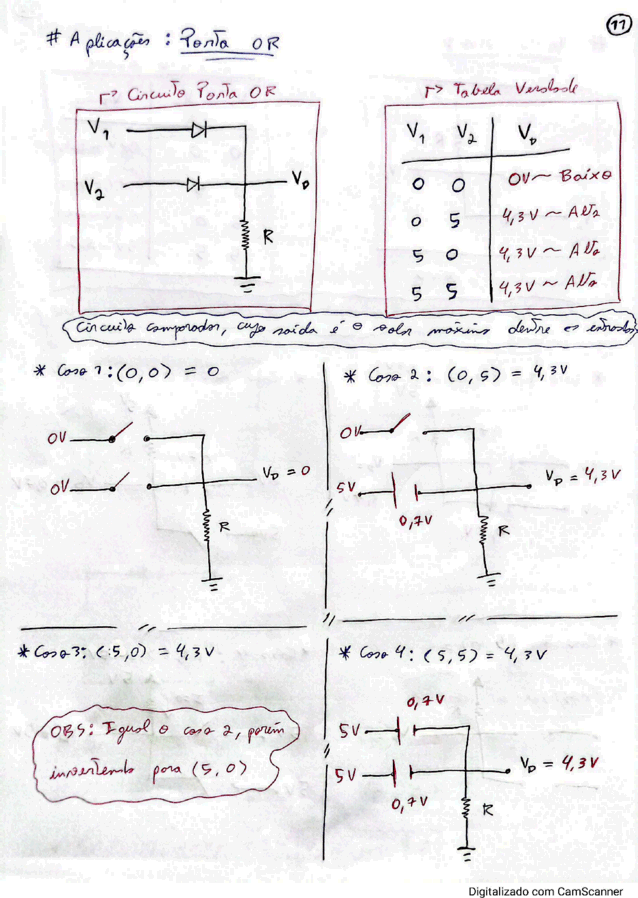 11
# Aplicações: Porta OR
↱ Circuito Porta OR
V1
V2
VD
R
↱ Tabela Verdade
V1 V2 VD
0 0 0V ~ Baixo
0 5 4,3V ~ Alto
5 0 4,3V ~ Alto
5 5 4,3V ~ Alto
Circuito comprador, cuja saída é o valor máximo dentre as entradas
* Caso 1: (0,0) = 0
0V
0V
VD = 0
R
* Caso 2: (0,5) = 4,3V
0V
5V
0,7V
VD = 4,3V
R
* Caso 3: (5,0) = 4,3V
OBS: Igual o caso 2, porém
invertendo para (5,0)
* Caso 4: (5,5) = 4,3V
0,7V
5V
5V
0,7V
VD = 4,3V
R
Digitalizado com CamScanner